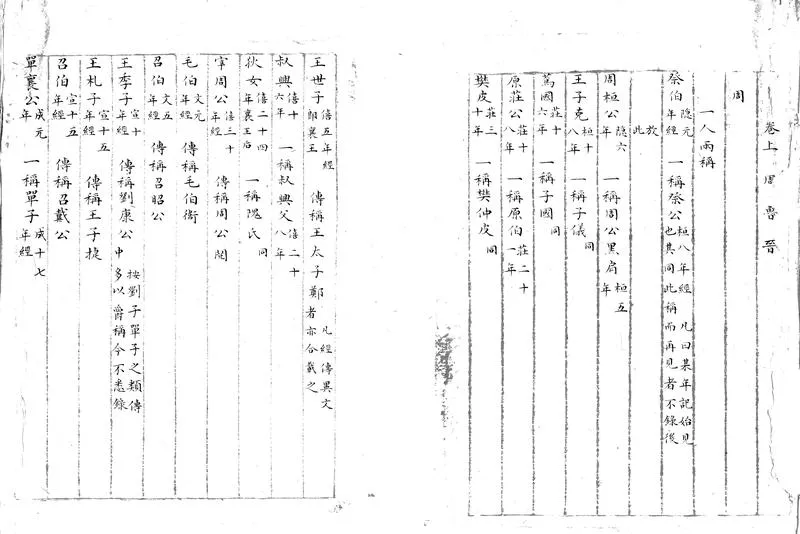 卷上 周魯晉
周
一人兩稱
祭伯隱元年經 一稱祭公桓八年經 凡曰某年記始見也其同此稱而再見者不錄後
放此
周桓公隱六年 一稱周公黑肩桓五年
王子克桓十八年 一稱子儀同
蔿國莊十六年 一稱子國同
原莊公莊十八年 一稱原伯莊二十一年
樊皮莊三十年 一稱樊仲皮同
王世子僖五年經即襄王 傳稱王太子鄭凡經傳異文者亦合載之
叔興僖十六年 一稱叔興父僖二十八年
狄女僖二十四年襄王后 一稱隗氏同
宰周公僖三十年經 傳稱周公閱
毛伯文元年經 傳稱毛伯衛
召伯文五年經 傳稱召昭公
王季子宣十年經 傳稱劉康公按劉子單子之類傳中多以爵稱今不悉錄
王札子宣十五年經 傳稱王子捷
召伯宣十五年經 傳稱召戴公
單襄公成元年 一稱單子成十七年經